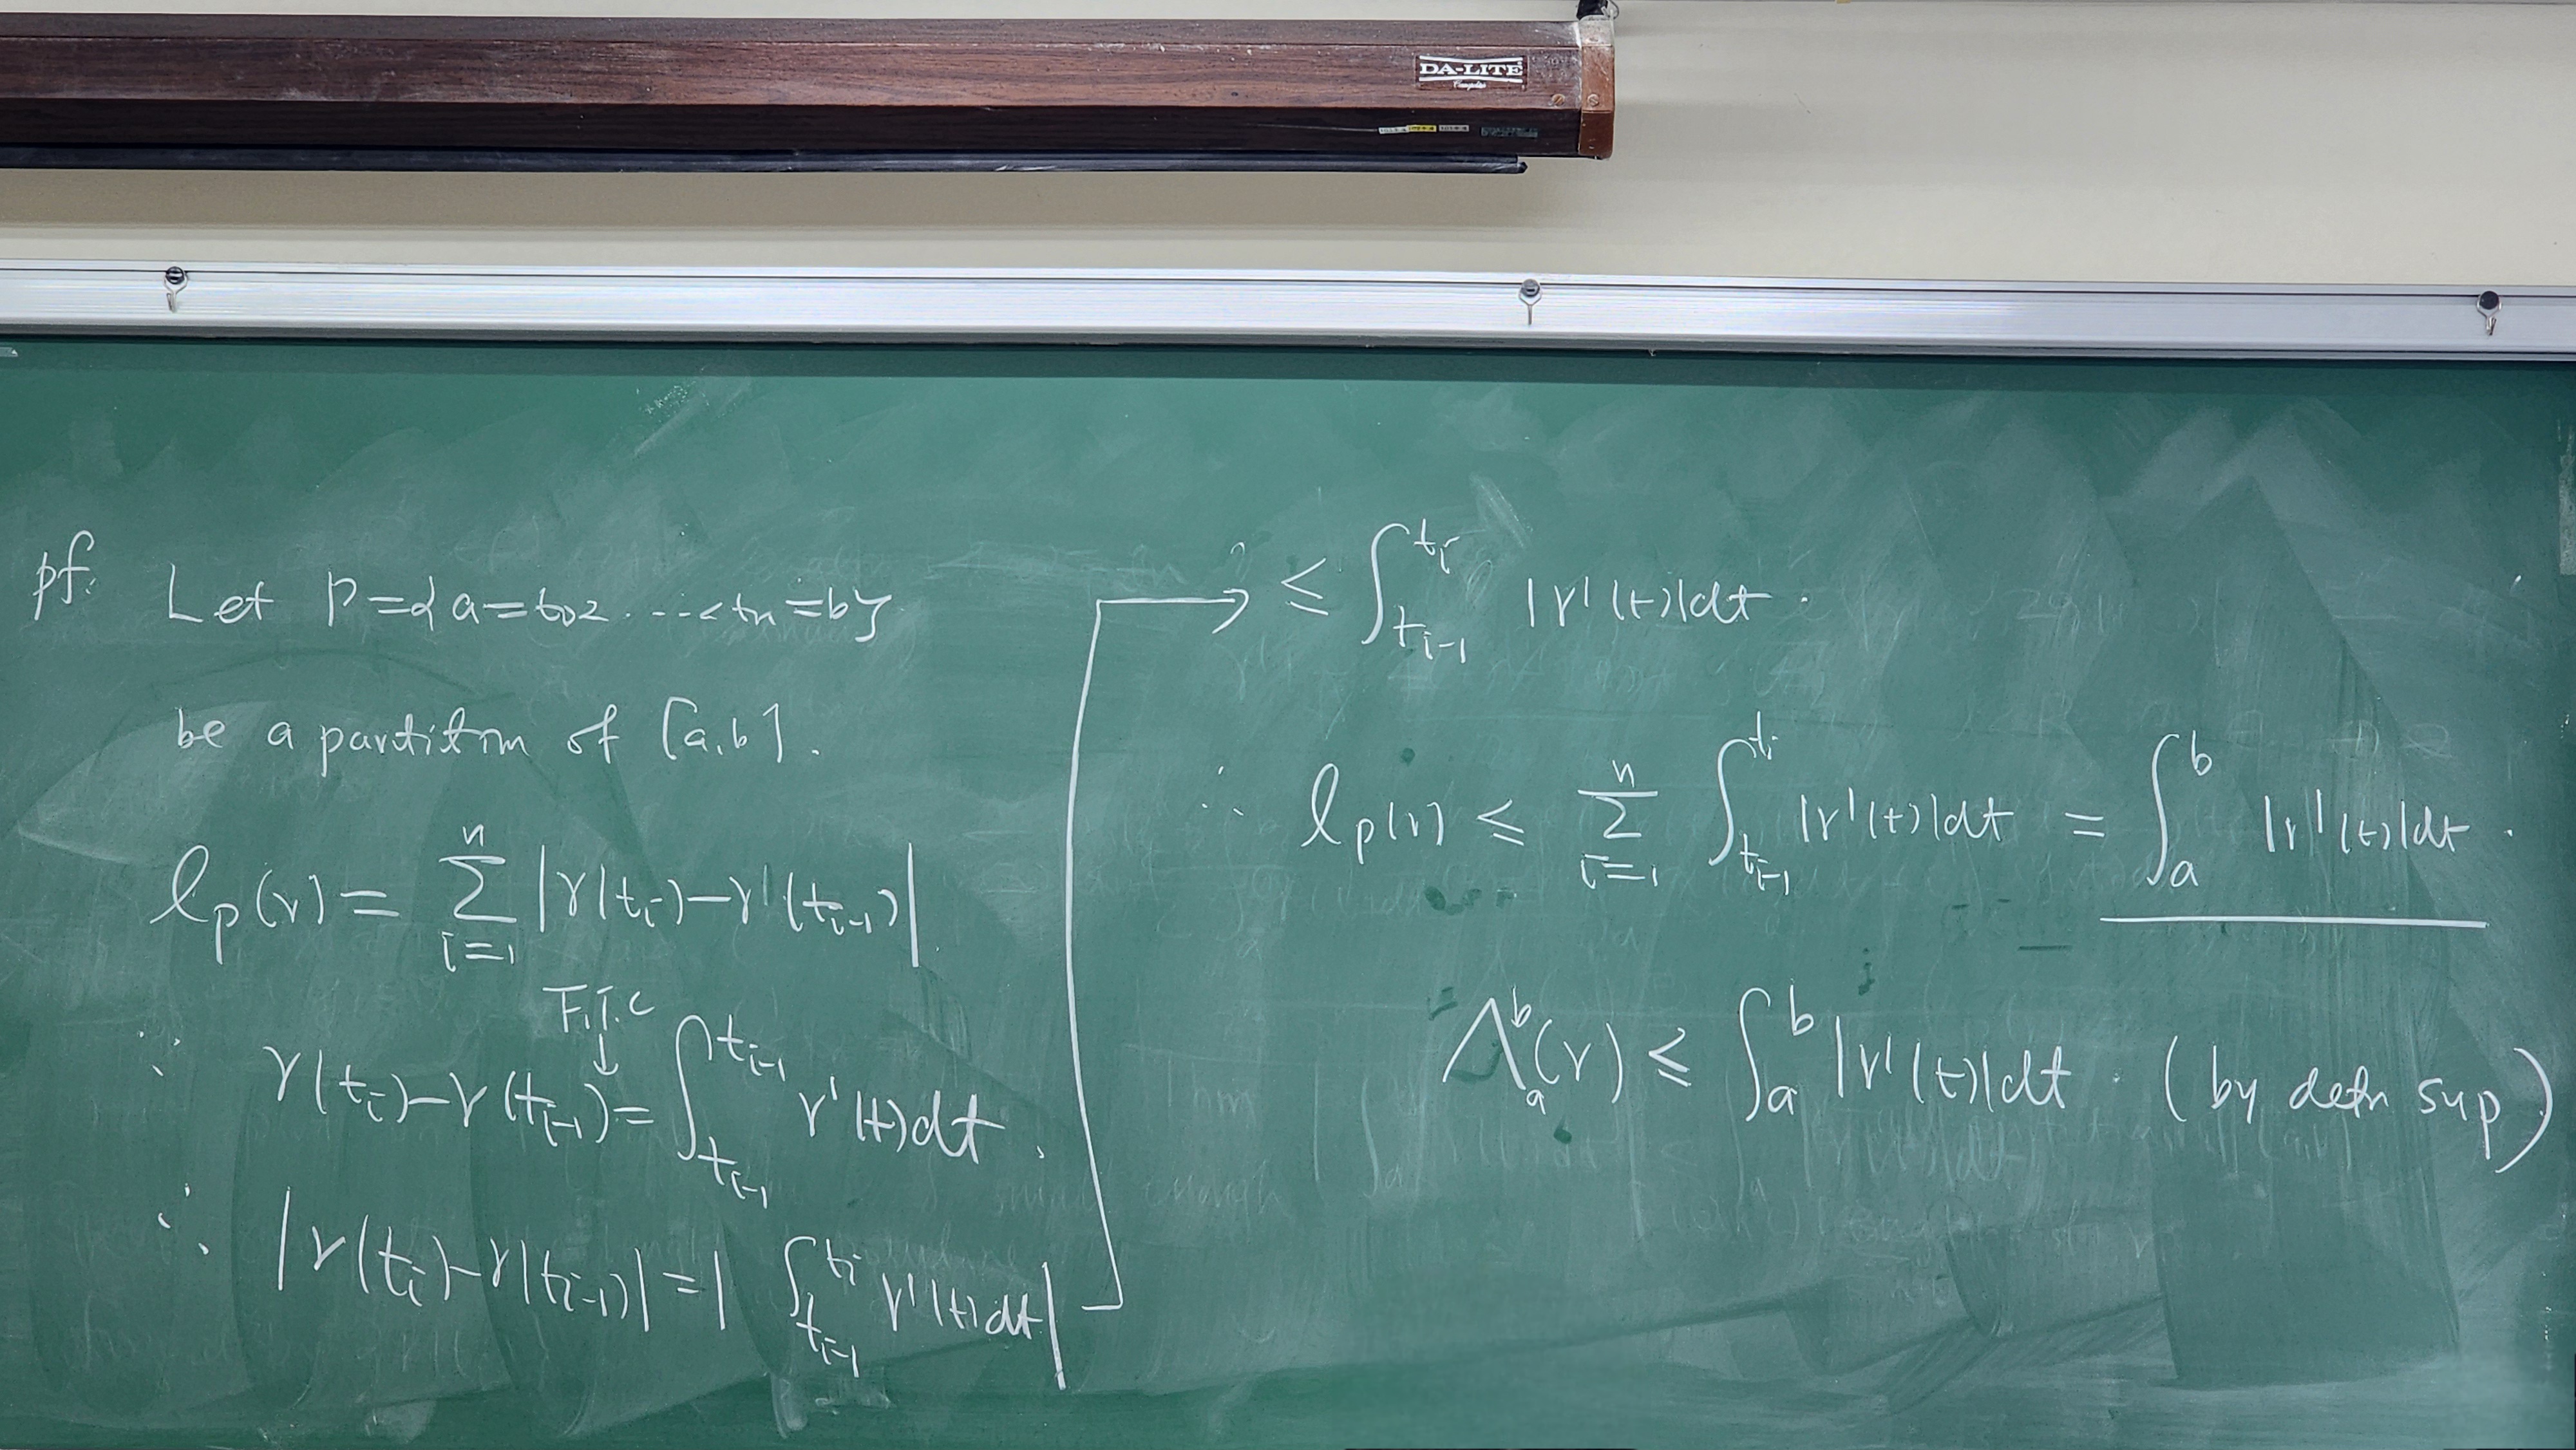 DA-LITE
pf: Let P={a=t₀< ... <tₙ=b}
be a partition of [a,b].
ℓ_P(γ) = ∑_{i=1}^{n} |γ(t_i)−γ'(t_{i−1})|
F.T.C
↓
∵ γ(t_i)−γ(t_{i−1}) = ∫_{t_{i−1}}^{t_{i−1}} γ'(t)dt.
∴ |γ(t_i)−γ(t_{i−1})| = | ∫_{t_{i−1}}^{t_i} γ'(t)dt|
→ ≤ ∫_{t_{i−1}}^{t_i} |γ'(t)|dt.
∴ ℓ_P(γ) ≤ ∑_{i=1}^{n} ∫_{t_{i−1}}^{t_i} |γ'(t)|dt = ∫_a^b |γ'(t)|dt.
Λ_a^b(γ) ≤ ∫_a^b |γ'(t)|dt. (by defn sup)